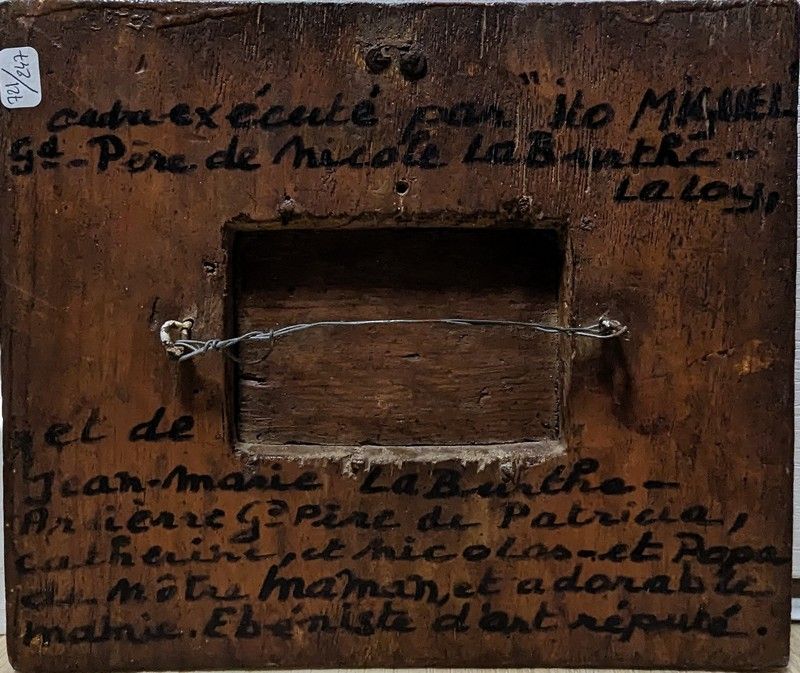 721/247
cadre exécuté par "ito MIGUEL
Gd-Père de Nicole LaBurthe-
LaLoy,
et de
Jean-Marie LaBurthe-
Arrière Gd Père de Patricia,
Catherine, et Nicolas-et Papa
de Nôtre MaMan, et adorable
mamie. Ebéniste d'art réputé.